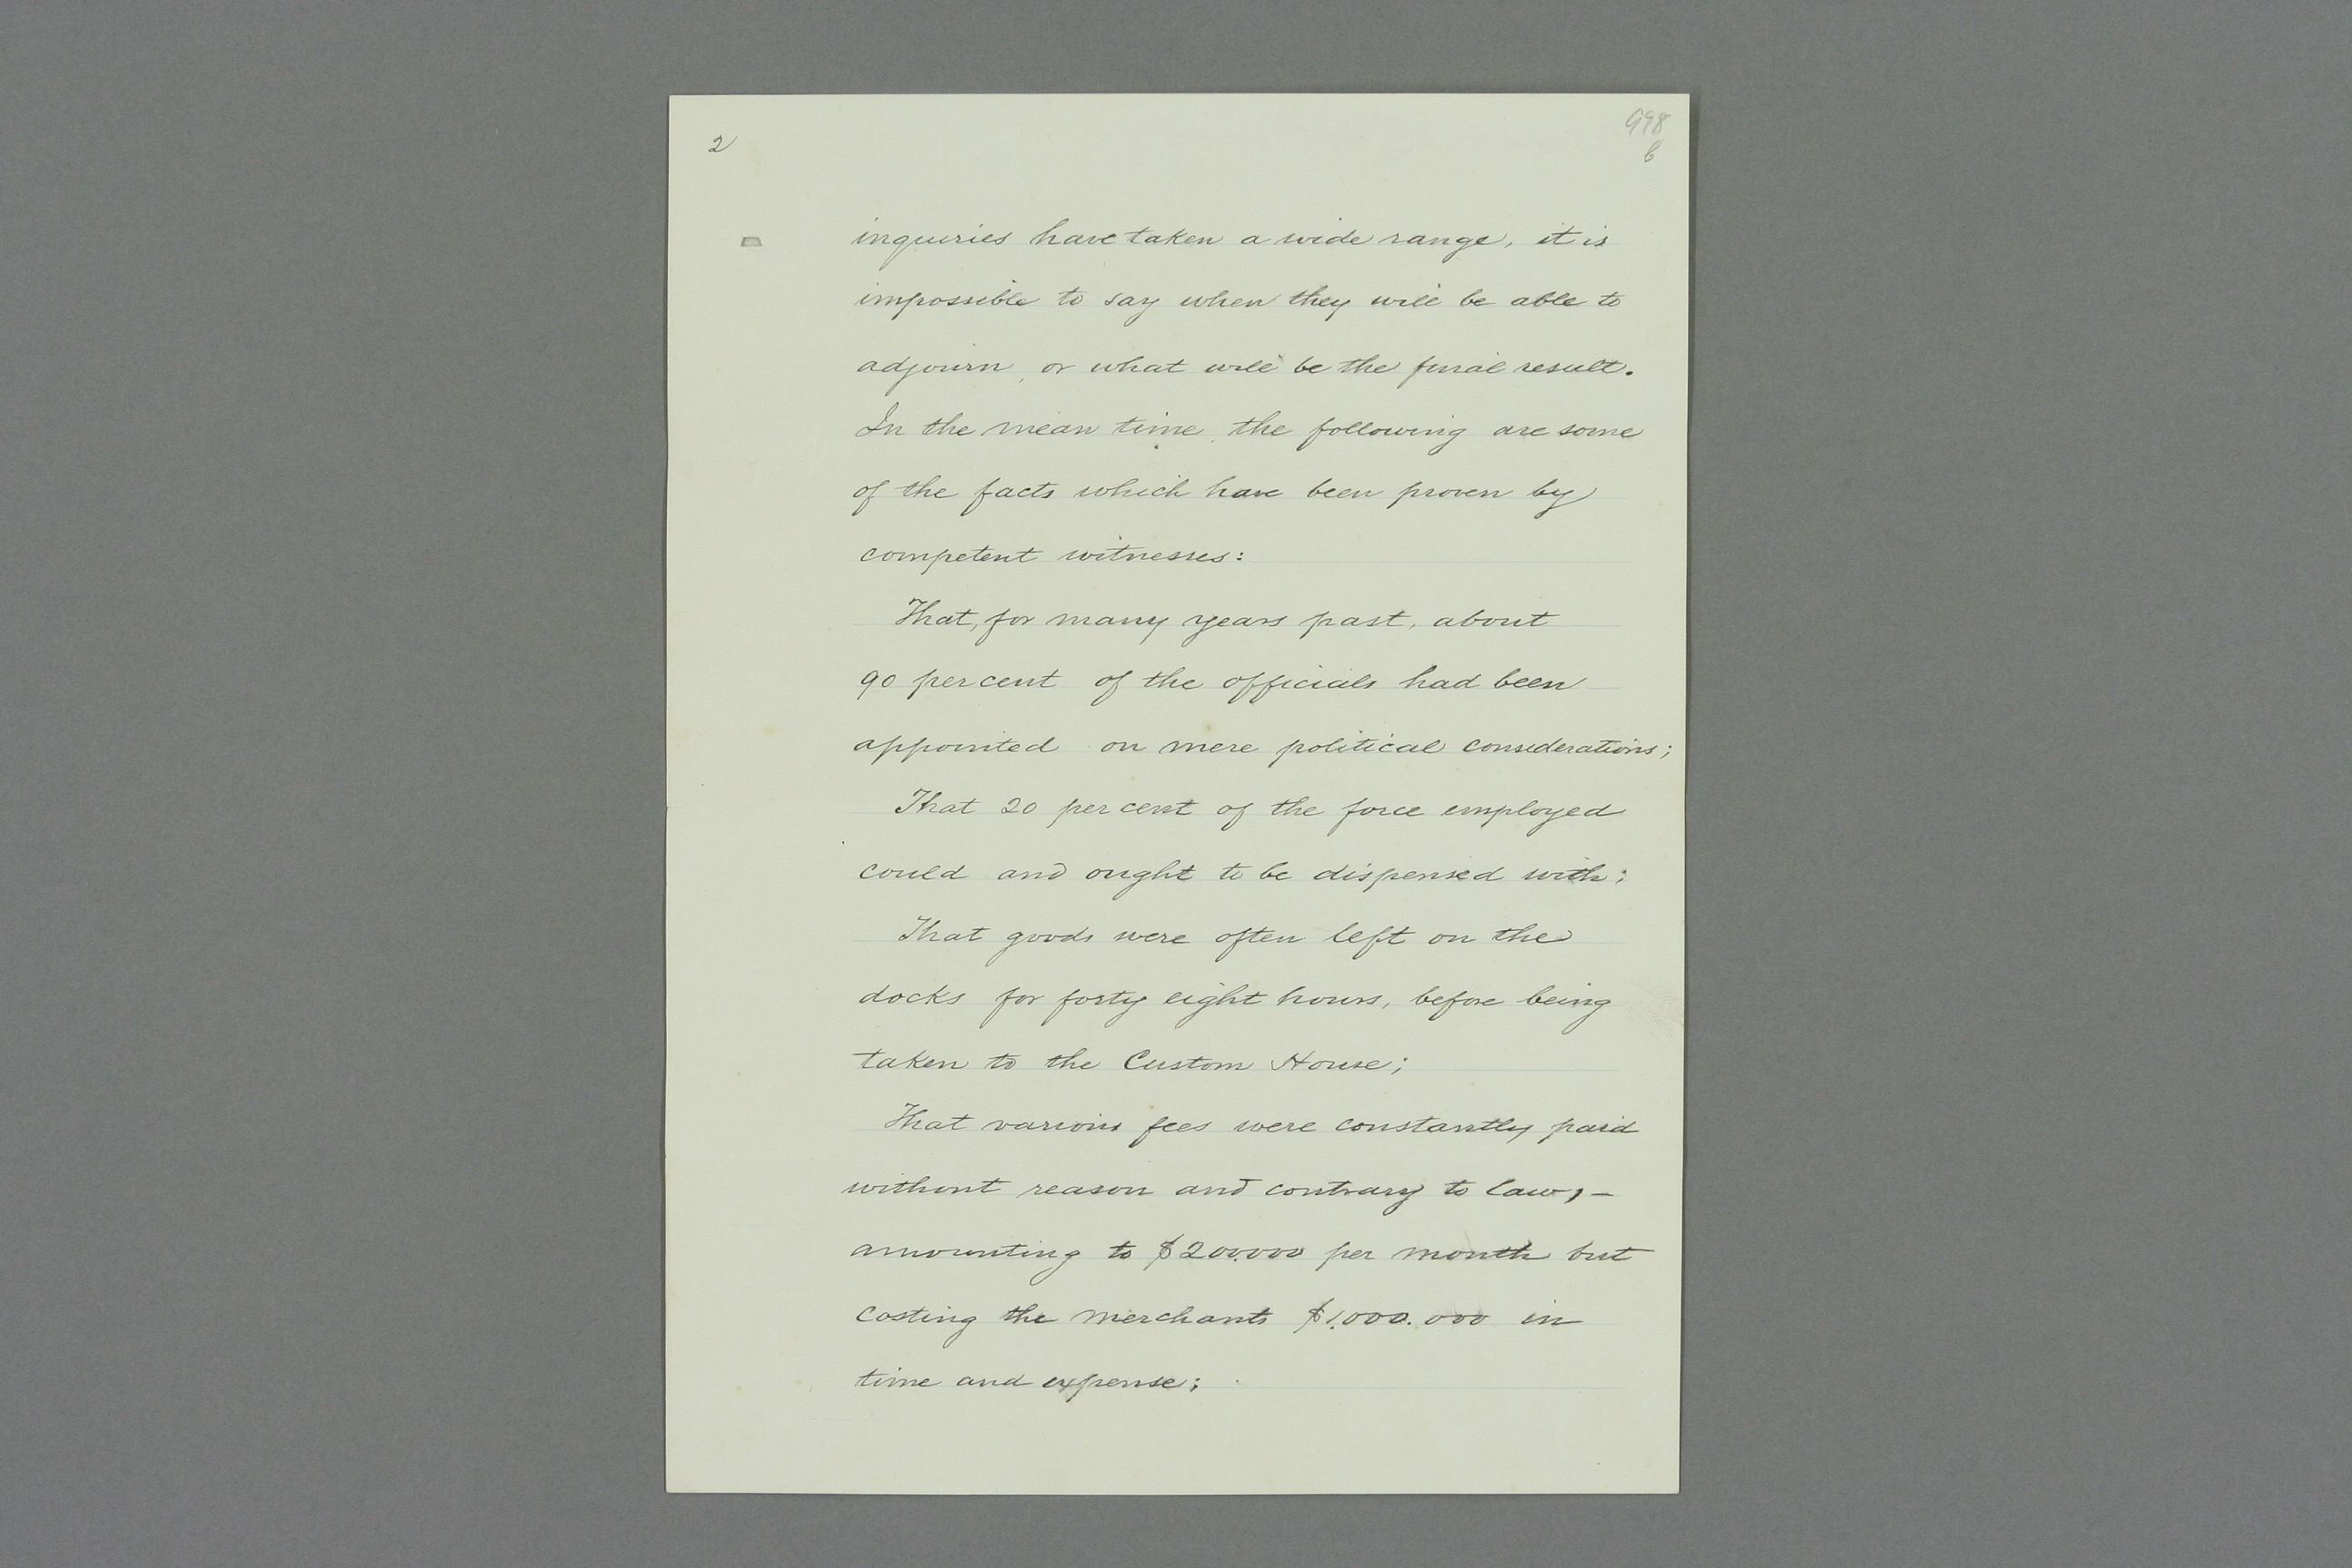 2
998
b
inquiries have taken a wide range, it is
impossible to say when they will be able to
adjourn, or what will be the final result.
In the mean time, the following are some
of the facts which have been proven by
competent witnesses:
That, for many years past, about
90 per cent of the officials had been
appointed on mere political considerations;
That 20 per cent of the force employed
could and ought to be dispensed with;
That goods were often left on the
docks for forty eight hours, before being
taken to the Custom House;
That various fees were constantly paid
without reason and contrary to law, -
amounting to $200.000 per month but
costing the merchants $1.000.000 in
time and expense;